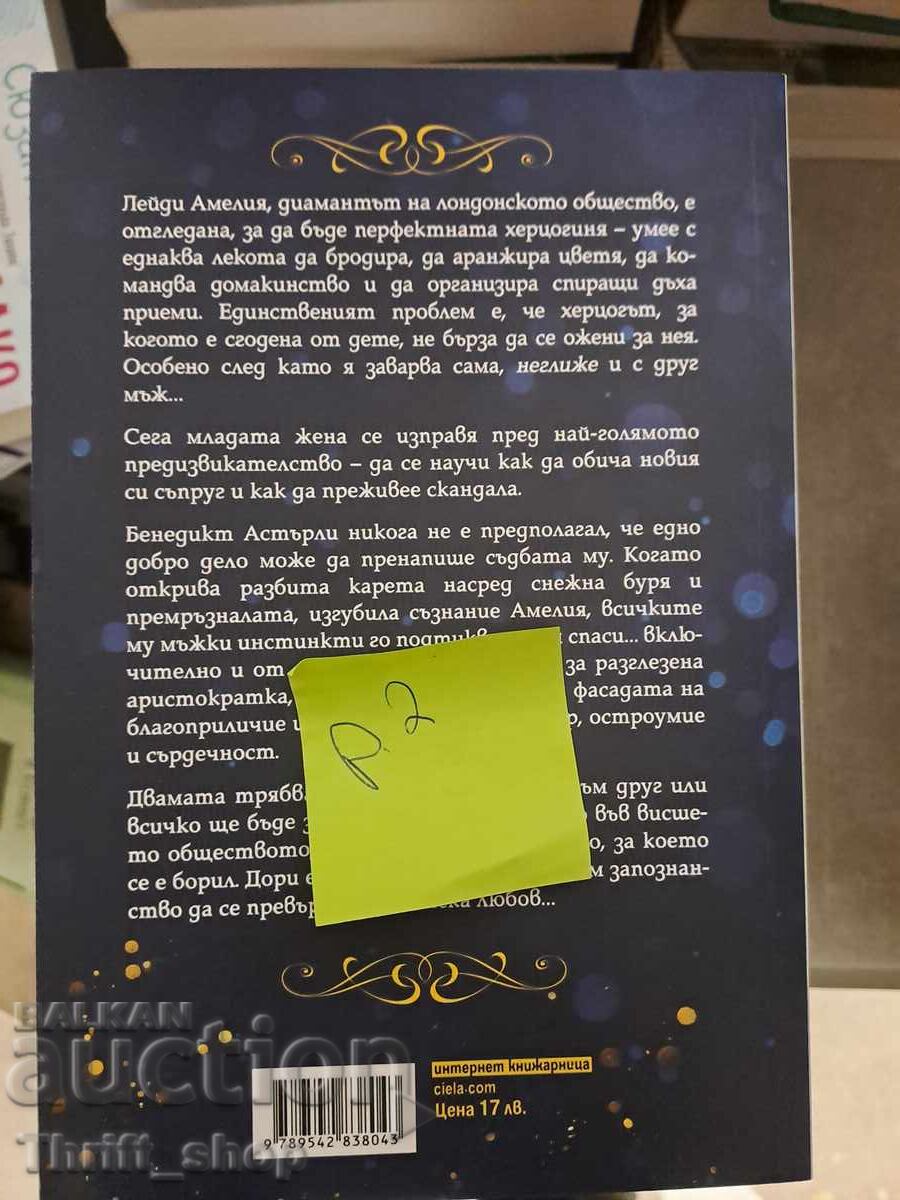 Лейди Амелия, диамантът на лондонското общество, е
отгледана, за да бъде перфектната херцогиня – умее с
еднаква лекота да бродира, да аранжира цветя, да ко-
мандва домакинство и да организира спиращи дъха
приеми. Единственият проблем е, че херцогът, за
когото е сгодена от дете, не бърза да се ожени за нея.
Особено след като я заварва сама, неглиже и с друг
мъж...
Сега младата жена се изправя пред най-голямото
предизвикателство – да се научи как да обича новия
си съпруг и как да преживее скандала.
Бенедикт Астърли никога не е предполагал, че едно
добро дело може да пренапише съдбата му. Когато
открива разбита карета насред снежна буря и
премръзналата, изгубила съзнание Амелия, всичките
му мъжки инстинкти го спаси... вклю-
чително и от за разглезена
аристократка, фасадата на
благоприличие остроумие
и сърдечност.
Двамата друг или
всичко ще бъде във висше-
то обществото за което
се е борил. Дори запознан-
ство да се любов...
р. 2
интернет книжарница
ciela.com
Цена 17 лв.
9 789542 838043
BALKAN
auction
Thrift_shop